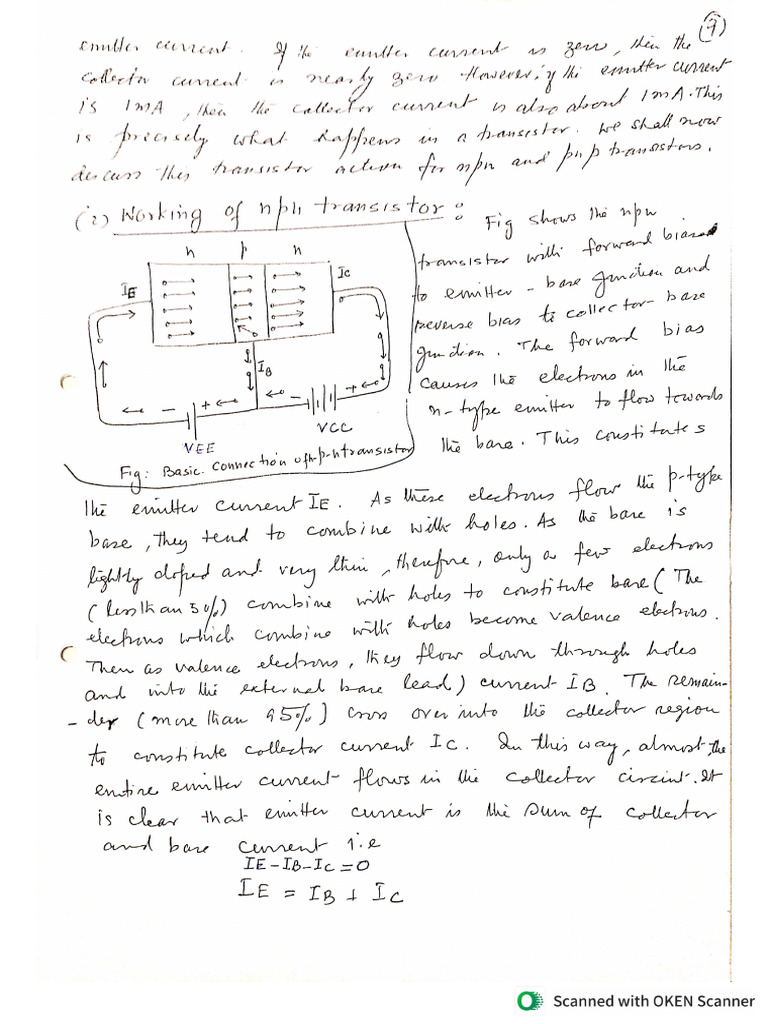 (7)
emitter current. If the emitter current is zero, then the
collector current is nearly zero However, if the emitter current
is 1mA, then the collector current is also about 1mA. This
is precisely what happens in a transistor. we shall now
discuss this transistor action for npn and pnp transistors.
(i) Working of npn transistor :
Fig shows the npn
transistor with forward biased
to emitter - base junction and
reverse bias to collector- base
junction. The forward bias
causes the electrons in the
n-type emitter to flow towards
the base. This constitutes
n p n
IE IC
IB
- + - +
VEE VCC
Fig: Basic connection of n-p-n transistor
the emitter current IE. As these electrons flow the p-type
base, they tend to combine with holes. As the base is
lightly doped and very thin, therefore, only a few electrons
(less than 5%) combine with holes to constitute base (The
electrons which combine with holes become valence electrons.
Then as valence electrons, they flow down through holes
and into the external base lead) current IB. The remain-
-der (more than 95%) cross over into the collector region
to constitute collector current Ic. In this way, almost the
entire emitter current flows in the collector circuit. It
is clear that emitter current is the sum of collector
and base current i.e
IE-IB-Ic=0
IE = IB + Ic
Scanned with OKEN Scanner